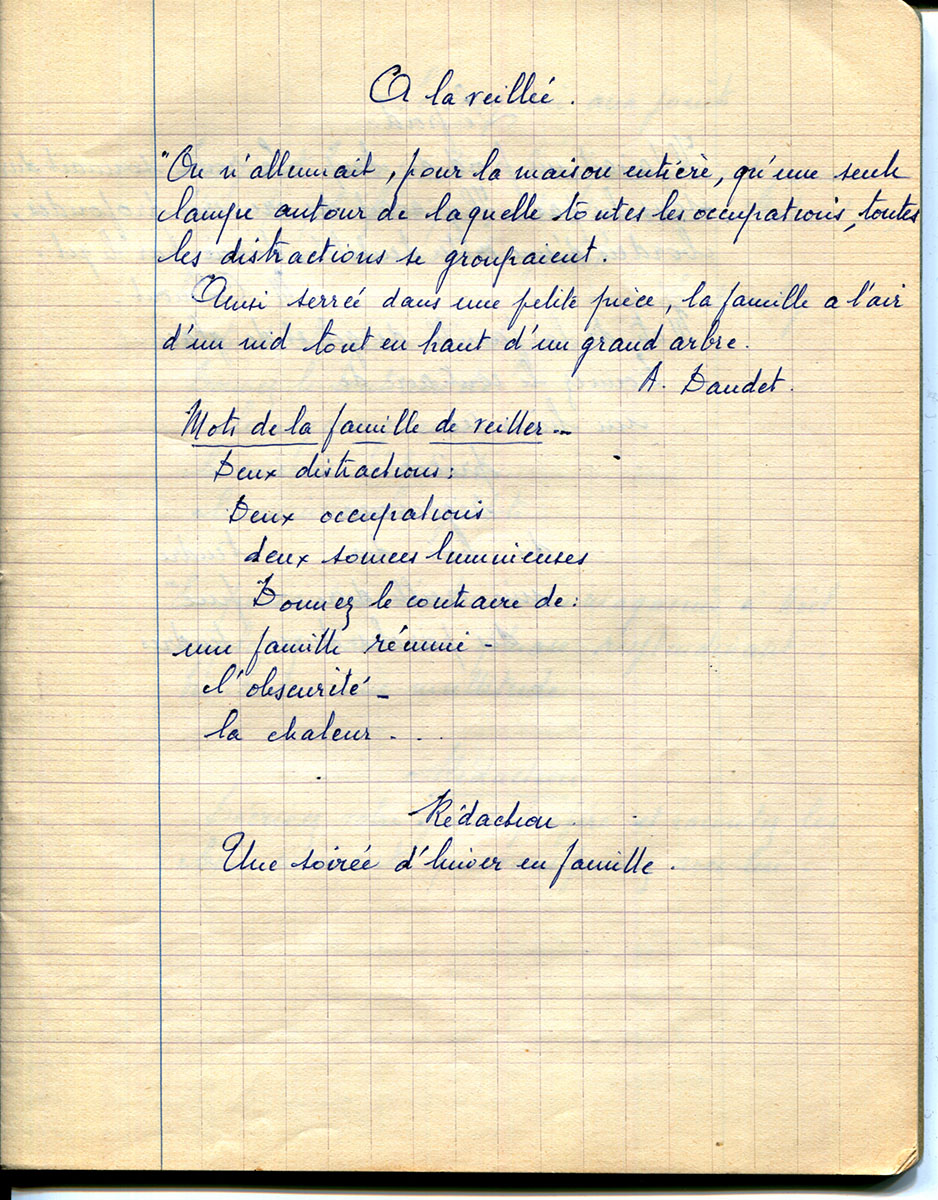 A la veillée.
"On n'allumait, pour la maison entière, qu'une seule
lampe autour de laquelle toutes les occupations, toutes
les distractions se groupaient.
Ainsi serrée dans une petite pièce, la famille a l'air
d'un nid tout en haut d'un grand arbre.
A. Daudet.
Mots de la famille de veiller -
Deux distractions:
Deux occupations
deux sources lumineuses
Donnez le contraire de:
une famille réunie -
l'obscurité -
la chaleur - . .
Rédaction
Une soirée d'hiver en famille.